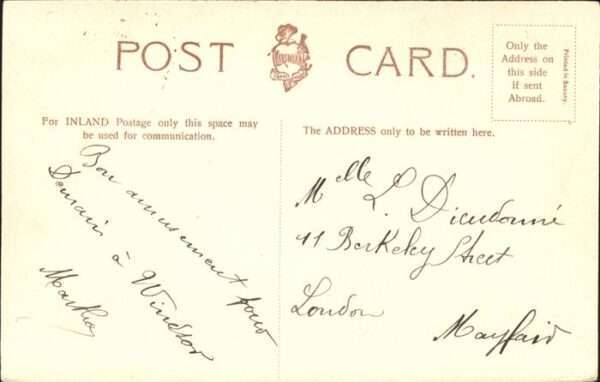 POST CARD.
Only the
Address on
this side
if sent
Abroad.
Printed in Saxony.
For INLAND Postage only this space may
be used for communication.
The ADDRESS only to be written here.
Bon amusement pour
Demain à Windsor
Martha
Mlle L. Dieudonné
11 Berkeley Street
London
Mayfair